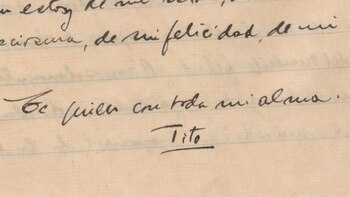 estoy de mi
de mi felicidad, de mi
Te quiero con toda mi alma.
Tito